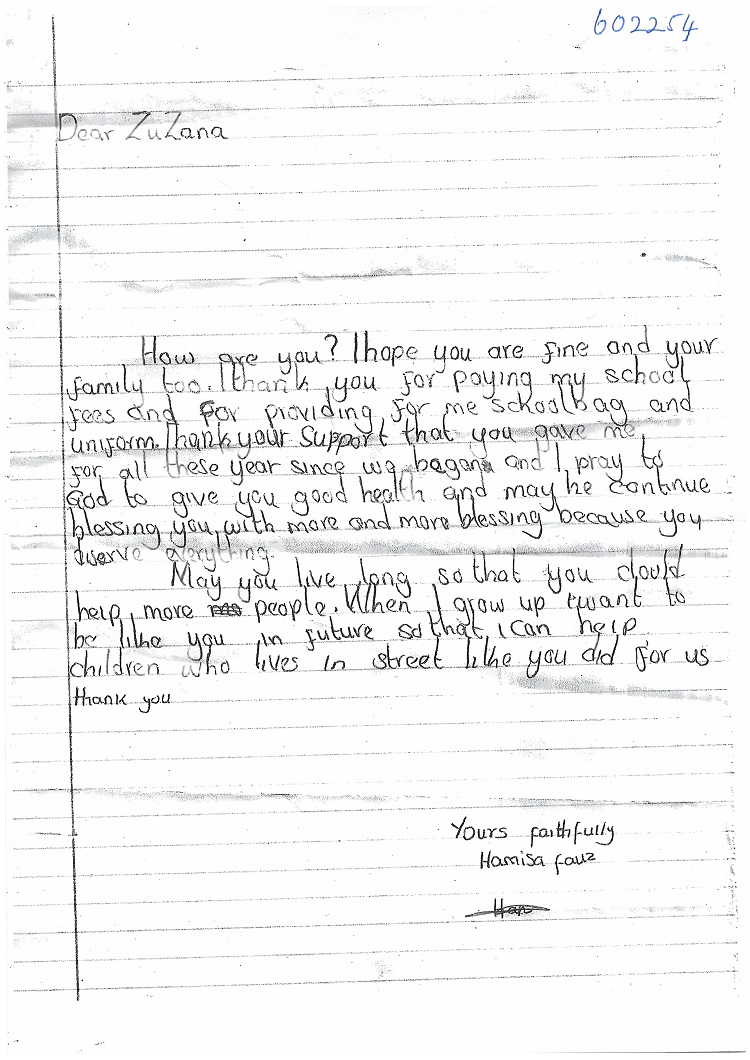 602254
Dear ZuZana
How are you? I hope you are fine and your
family too. I thank you for paying my school
fees and for providing for me schoolbag and
uniform. Thank your Support that you gave me
for all these year since we bagana and I pray to
God to give you good health and may he continue
blessing you with more and more blessing because you
diserve everything.
May you live long so that you clould
help more people. When I grow up I want to
be lihe you in future so that i can help
children who lives in street lihe you did for us
thank you
Yours faithfully
Hamisa fauz
Ham